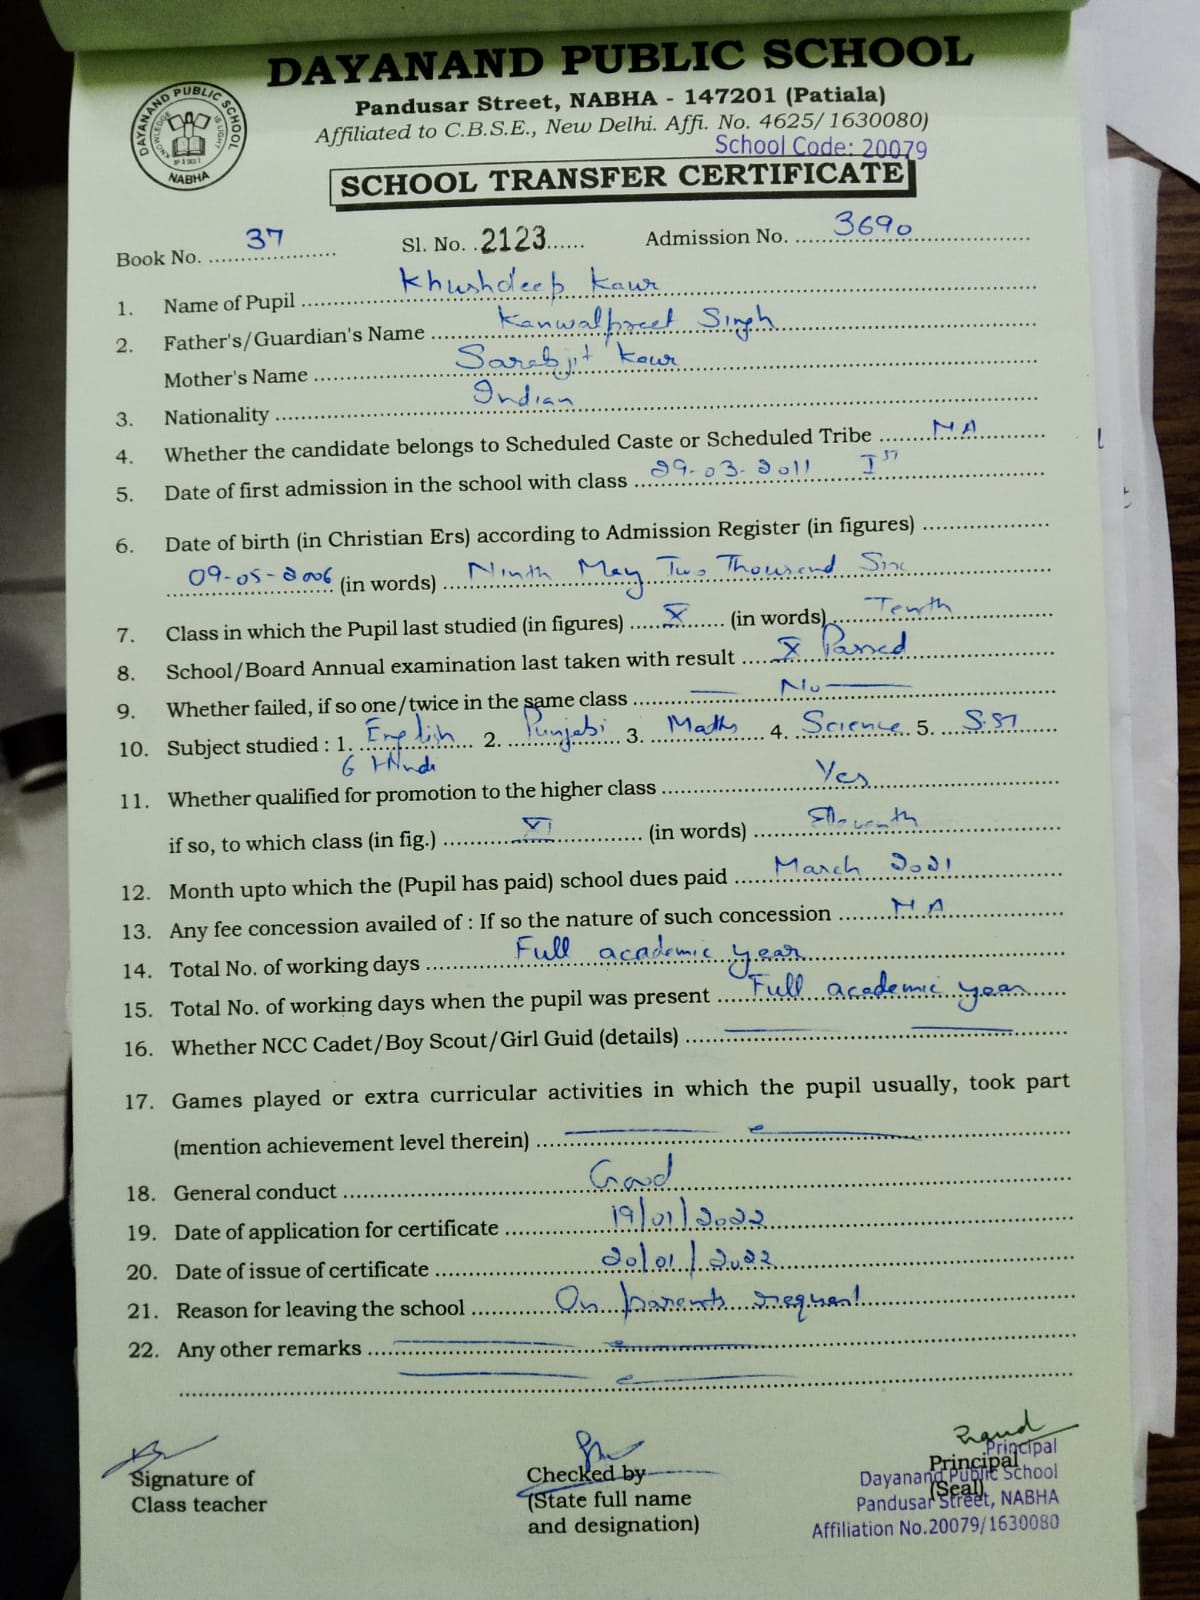 DAYANAND PUBLIC SCHOOL
Pandusar Street, NABHA - 147201 (Patiala)
Affiliated to C.B.S.E., New Delhi. Affi. No. 4625/ 1630080)
School Code: 20079
DAYANAND PUBLIC SCHOOL
KNOWLEDGE IS LIGHT
NABHA
SCHOOL TRANSFER CERTIFICATE
Book No. 37 Sl. No. 2123 Admission No. 3690
1. Name of Pupil Khushdeep Kaur
2. Father's/Guardian's Name Kanwalpreet Singh
Mother's Name Sarabjit Kaur
3. Nationality Indian
4. Whether the candidate belongs to Scheduled Caste or Scheduled Tribe NA
5. Date of first admission in the school with class 29-03-2011 I ST
6. Date of birth (in Christian Ers) according to Admission Register (in figures)
09-05-2006 (in words) Ninth May Two Thousand Six
7. Class in which the Pupil last studied (in figures) X (in words) Tenth
8. School/Board Annual examination last taken with result X Passed
9. Whether failed, if so one/twice in the same class No
10. Subject studied : 1. English 2. Punjabi 3. Maths 4. Science 5. S.ST
6 Hindi
11. Whether qualified for promotion to the higher class Yes
if so, to which class (in fig.) XI (in words) Eleventh
12. Month upto which the (Pupil has paid) school dues paid March 2021
13. Any fee concession availed of : If so the nature of such concession NA
14. Total No. of working days Full academic year
15. Total No. of working days when the pupil was present Full academic year
16. Whether NCC Cadet/Boy Scout/Girl Guid (details)
17. Games played or extra curricular activities in which the pupil usually, took part
(mention achievement level therein)
18. General conduct Good
19. Date of application for certificate 19/01/2022
20. Date of issue of certificate 20/01/2022
21. Reason for leaving the school On parents request
22. Any other remarks
Signature of
Class teacher
Checked by
(State full name
and designation)
Principal
(Seal)
Principal
Dayanand Public School
Pandusar Street, NABHA
Affiliation No.20079/1630080